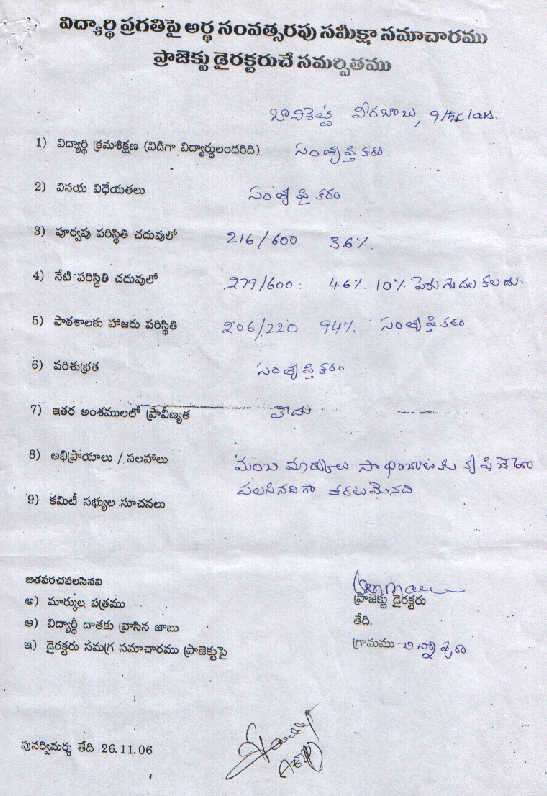 విద్యార్థి ప్రగతిపై అర్థ సంవత్సరపు సమీక్షా సమాచారము
ప్రాజెక్టు డైరక్టరుచే సమర్పితము
వీరబాబు,
1) విద్యార్థి క్రమశిక్షణ (విడిగా విద్యార్థులందరిది) సంతృప్తికరం
2) వినయ విధేయతలు సంతృప్తికరం
3) పూర్వపు పరిస్థితి చదువులో 216/600 36%
4) నేటి పరిస్థితి చదువులో 277/600. 46% 10% పెరుగుదల కలదు.
5) పాఠశాలకు హాజరు పరిస్థితి 206/220 94% సంతృప్తికరం
6) పరిశుభ్రత సంతృప్తికరం
7) ఇతర అంశములలో ప్రావీణ్యత లేదు
8) అభిప్రాయాలు / సలహాలు మంచి మార్కులు సాధించుటకు కృషి చేయ
వలసినదిగా
9) కమిటీ సభ్యుల సూచనలు
జతపరచవలసినవి
అ) మార్కుల పత్రము ప్రాజెక్టు డైరక్టరు
ఆ) విద్యార్థి దాతకు వ్రాసిన జాబు తేది.
ఇ) డైరక్టరు సమగ్ర సమాచారము ప్రాజెక్టుపై గ్రామము
పునర్విమర్శ తేది 26.11.06